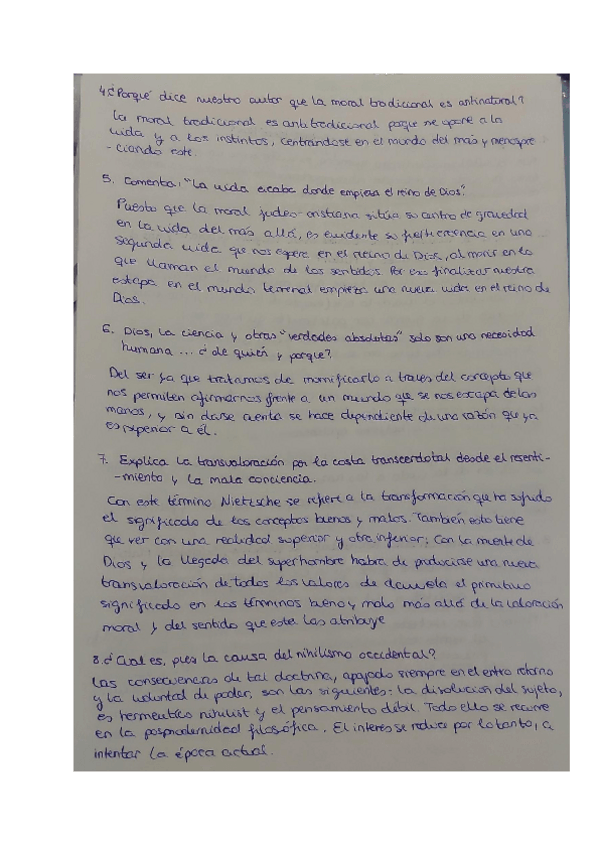 4. ¿Porqué dice nuestro autor que la moral tradicional es antinatural?
La moral tradicional es antitradicional porque se opone a la
vida y a los instintos, centrándose en el mundo del más y menospre
-ciando este.
5. Comenta: "La vida acaba donde empieza el reino de Dios".
Puesto que la moral judeo-cristiana sitúa su centro de gravedad
en la vida del más allá, es evidente su pertenencia en una
segunda vida que nos espera en el reino de Dios, al morir en lo
que llaman el mundo de los sentidos. Por eso finalizar nuestra
estapa en el mundo terrenal empieza una nueva vida en el reino de
Dios.
6. Dios, la ciencia y otras "verdades absolutas" solo son una necesidad
humana ... ¿de quién y porque?
Del ser ya que tratamos de momificarlo a traves del concepto que
nos permiten afirmarnos frente a un mundo que se nos escapa de las
manos, y sin darse cuenta se hace dependiente de una razón que ya
es superior a él.
7. Explica la transvaloración por la costa transcerdotal desde el resenti-
-miento y la mala conciencia.
Con este término Nietzsche se refiere a la transformación que ha sufrido
el significado de los conceptos buenos y malos. También esto tiene
que ver con una realidad superior y otra inferior; Con la muerte de
Dios y la llegada del superhombre habra de producirse una nueva
transvaloración de todos los valores de el primitivo
significado en los términos bueno y malo más allá de la valoración
moral y del sentido que esta las atribuye
8. ¿Cual es, pues la causa del nihilismo occidental?
Las consecuencias de tal doctrina, apoyado siempre en el retorno
y la voluntad de poder, son las siguientes: la disolución del sujeto,
es y el pensamiento débil. Todo ello se reune
en la posmodernidad filosófica. El interes se reduce por lo tanto, a
intentar la época actual.